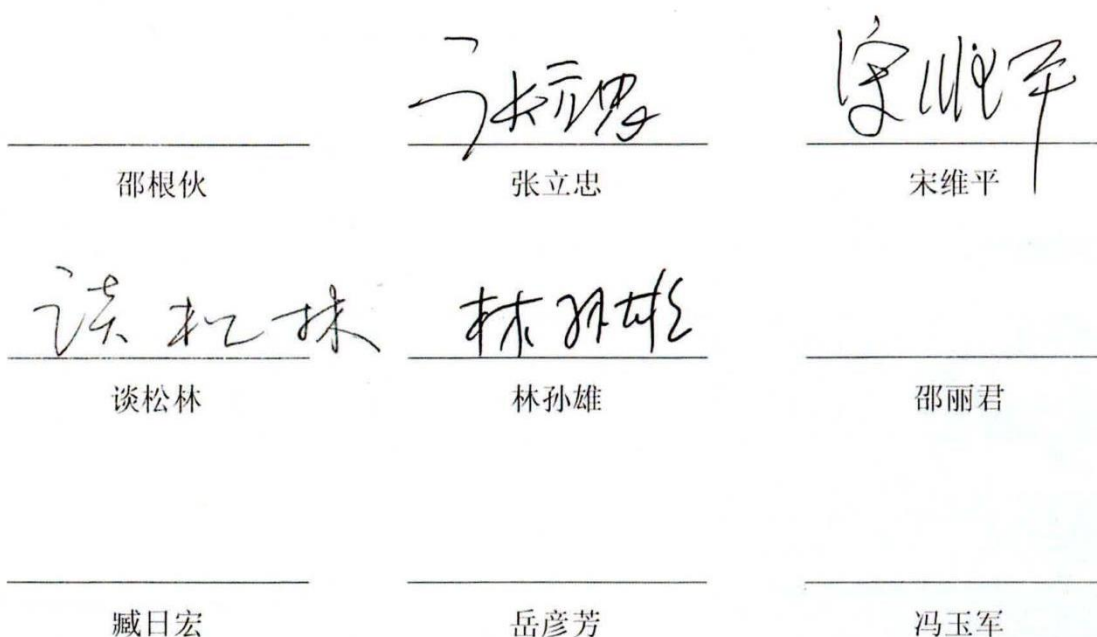 张立忠 宋维平
邵根伙 张立忠 宋维平
谈松林 林孙雄
谈松林 林孙雄 邵丽君
臧日宏 岳彦芳 冯玉军